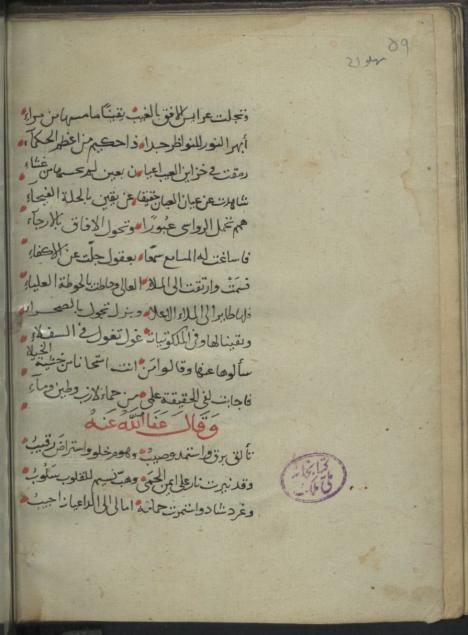 ٥٩
وتجلت عرايس الافق بالغيب يقينا ما مسها من مراء
أبهر النور للنواظر جدا ذا حكيم من اعظم الحكماء
رمقت في خزاين الغيب اعيان بعين لم تحسها من غشاء
شاهدت عن عيان العيان حقيقا عن يقين بالحلة الفيحاء
همم تحمل الرواسي عبورا وتحول الافاق بالارجاء
فاساغت له المسامع سمعا بعقول جلت عن الاكفاء
فسمت وارتقت الى الملاء العالى وحاطت بالحوطة العلياء
الملاء الاعلا تجول بالصحراء
وبقينا لها وفي الملكوتيات غول تغول في السفلاء
سألوها عنها وقالوا من انت امتحانا من خشية الخيلاء
فاجابت لفي الحقيقة على من حماء لازب وطين وماء
وقال عفا الله عنه
تألق برق واستمد وصيب وهوم خلو واستراض رقيب
وقد نيرت نار على ايمن الحمى وهب نسيم للقلوب سلوب
وغرد شاد واستمرت حمامة امالي الى الداعيات اجيب
كتابخانه
ملى ملك